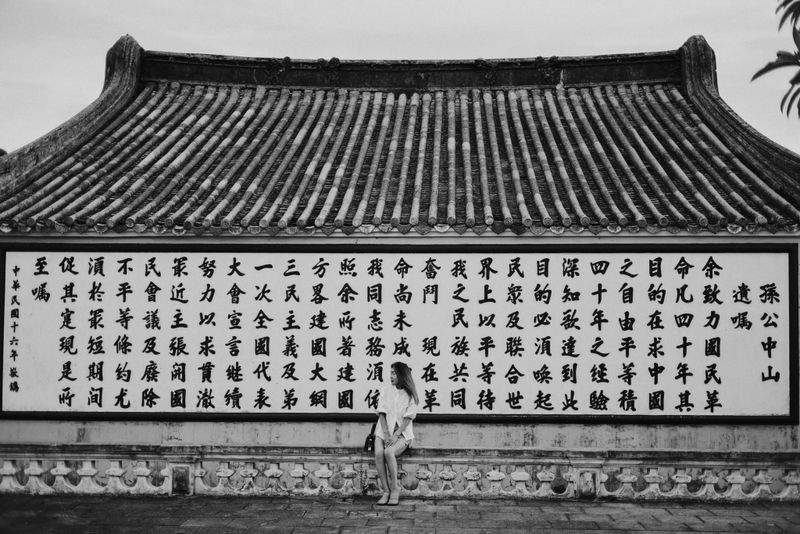 孫公中山
遺囑
余致力國民革
命凡四十年其
目的在求中國
之自由平等積
四十年之經驗
深知欲達到此
目的必須喚起
民衆及聯合世
界上以平等待
我之民族共同
奮鬥 現在革
命尚未成
我同志務須依
照余所著建國
方畧建國大綱
三民主義及第
一次全國代表
大會宣言繼續
努力以求貫澈
最近主張開國
民會議及廢除
不平等條約尤
須於最短期間
促其寔現是所
至囑
中華民國十六年 敬鐫